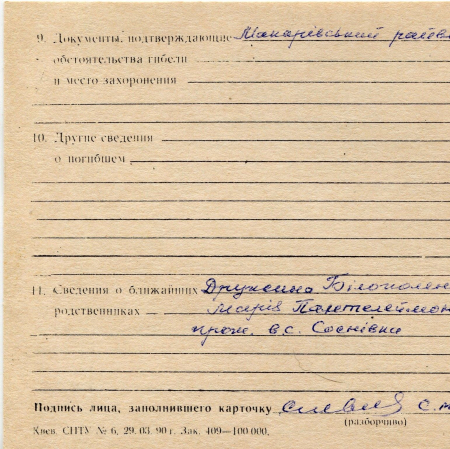 9. Документы, подтверждающие Макарівський
обстоятельства гибели
и место захоронения
10. Другие сведения
о погибшем
11. Сведения о ближайших Дружина
родственниках — Марія
прож. в с. Соснівка
Подпись лица, заполнившего карточку
(разборчиво)
Киев. СПТУ № 6, 29. 03. 90 г. Зак. 409—100.000.